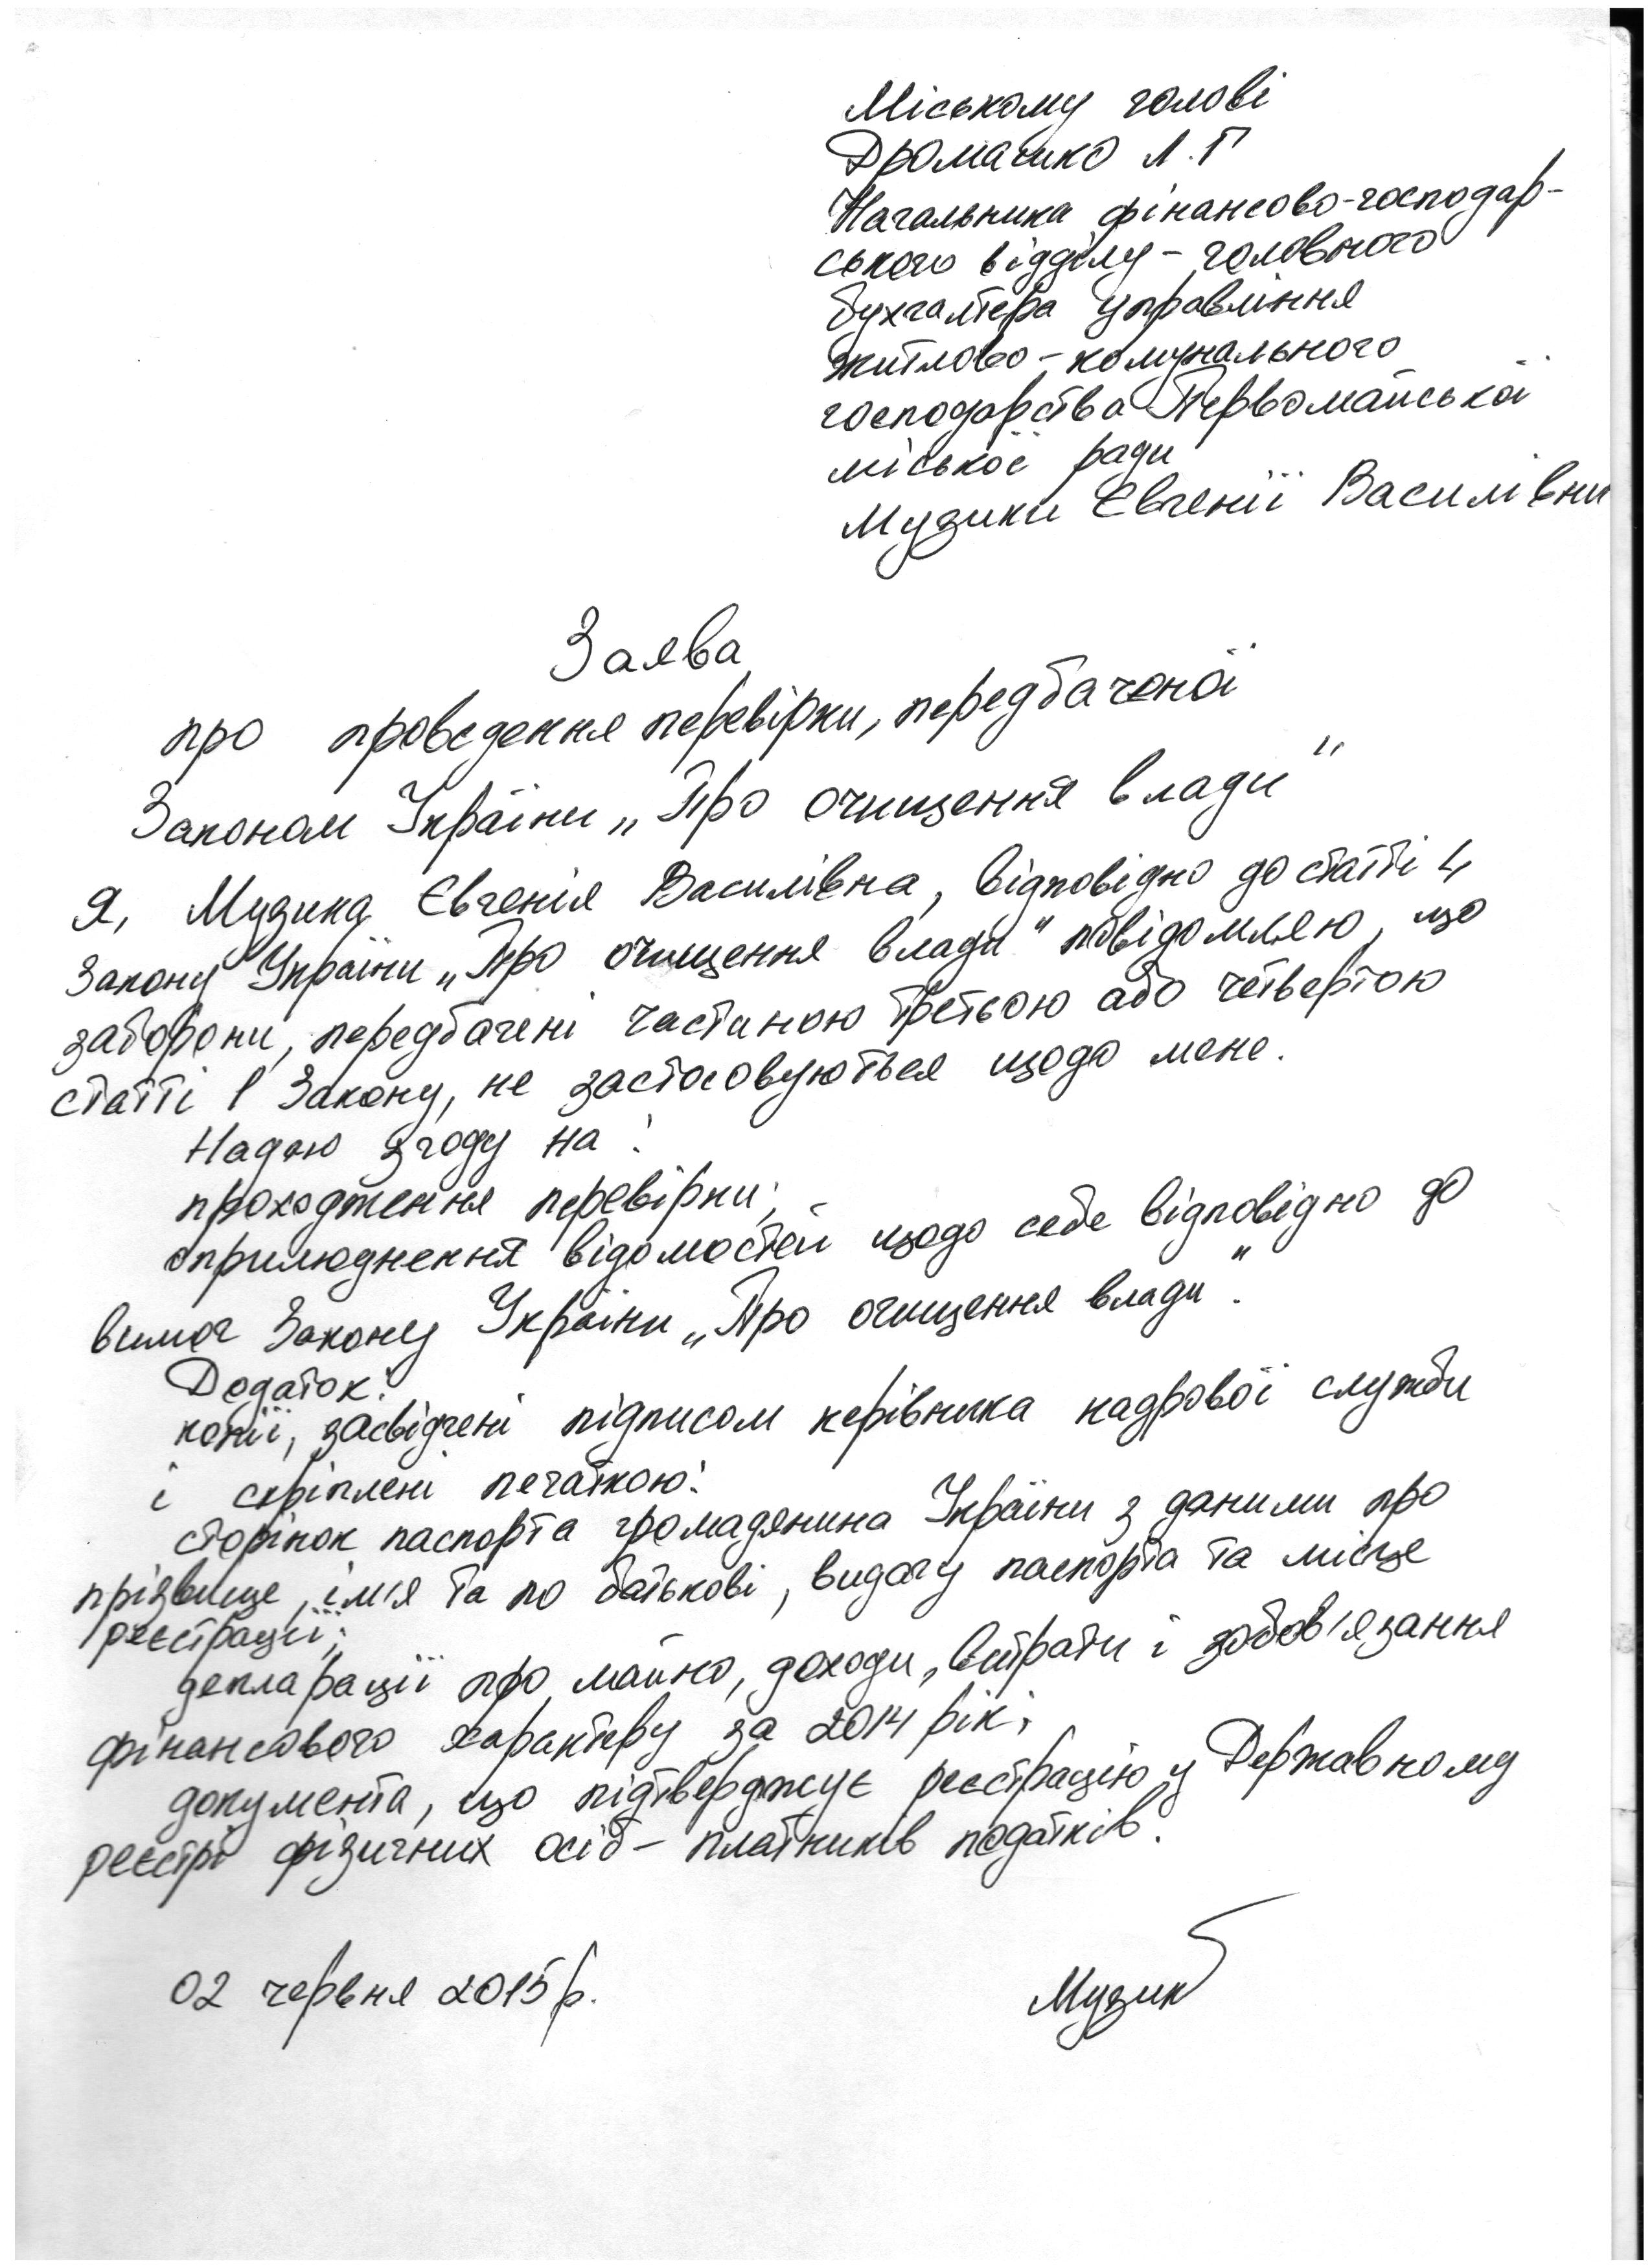 Міському голові
Дромашко Л.Г
Начальника фінансово-господар-
ського відділу - головного
бухгалтера управління
житлово-комунального
господарства Первомайської
міської ради
Музики Євгенії Василівни
Заява
про проведення перевірки, передбаченої
Законом України „Про очищення влади"
Я, Музика Євгенія Василівна, відповідно до статті 4
Закону України „Про очищення влади" повідомляю, що
заборони, передбачені частиною третьою або четвертою
статті 1 Закону, не застосовуються щодо мене.
Надаю згоду на:
проходження перевірки;
оприлюднення відомостей щодо себе відповідно до
вимог Закону України „Про очищення влади".
Додаток:
копії, засвідчені підписом керівника кадрової служби
і скріплені печаткою:
сторінок паспорта громадянина України з даними про
прізвище, ім'я та по батькові, видачу паспорта та місце
реєстрації;
декларації про майно, доходи, витрати і зобов'язання
фінансового характеру за 2014 рік;
документа, що підтверджує реєстрацію у Державному
реєстрі фізичних осіб - платників податків.
02 червня 2015р. Музик